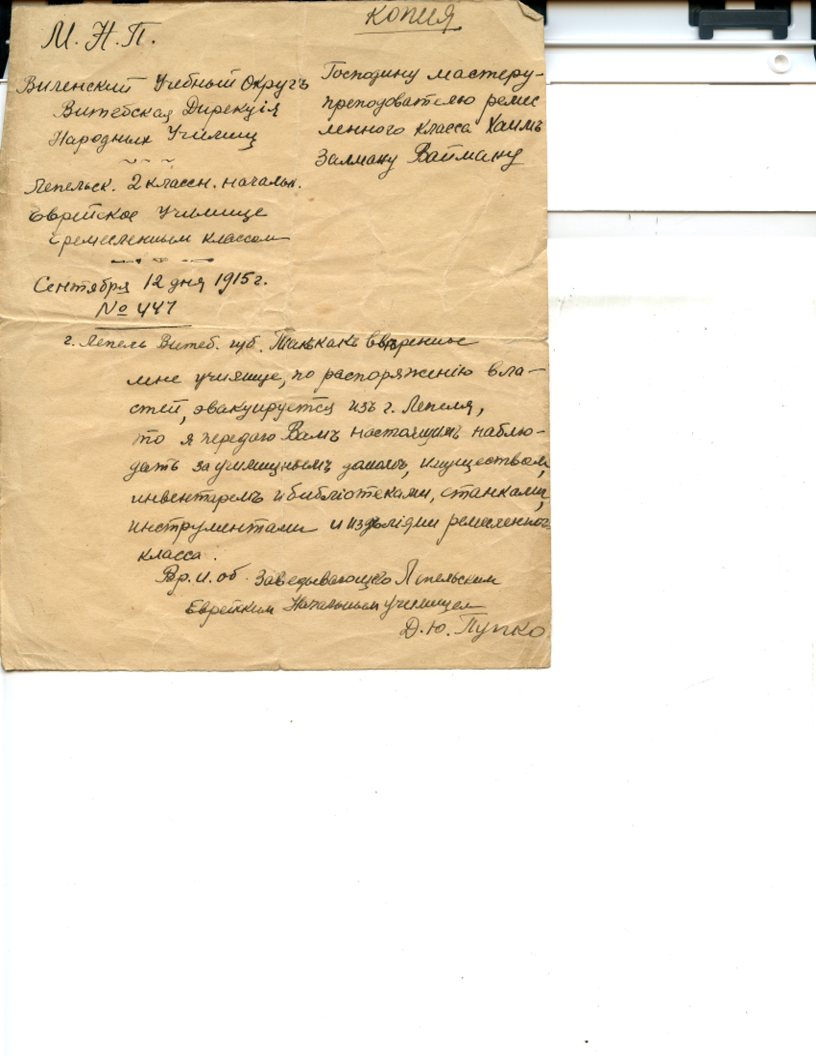 КОПИЯ
М. Н. П.
Виленский Учебный Округъ
Витебская Дирекція
Народных Училищ
Лепельск. 2 классн. начальн.
Еврейское училище
с ремесленным классом
Сентября 12 дня 1915 г.
№ 447
Господину мастеру-
преподователю ремес
ленного класса Хаимъ
Залману Вайману
г. Лепель Витеб. губ. Такъ какъ ввѣренное
мне училище, по распоряженію вла-
стей, эвакуируется изъ г. Лепеля,
то я передаю Вамъ настоящимъ наблю-
дать за училищнымъ домомъ, имуществом,
инвентаремъ и библіотеками, станками,
инструментами и издѣліями ремесленного
класса.
Вр. и. об. Заведывающего Лепельским
Еврейским Начальным училищем
Д. Ю. Пупко